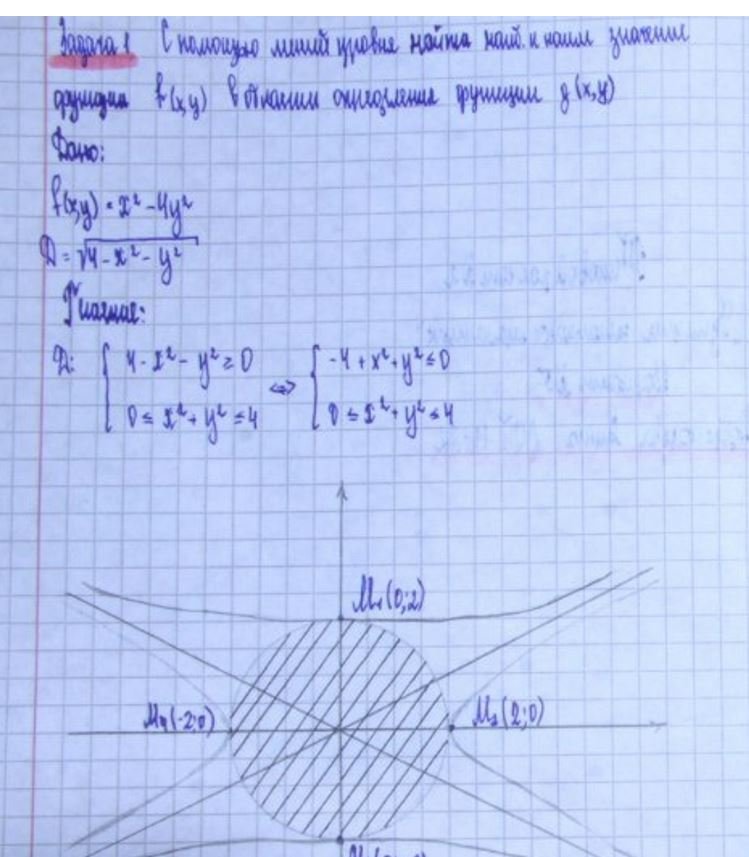 Задача 1 С помощью линий уровня найти наиб. и наим значение
функции f(x,y) в области определения функции g(x,y)
Дано:
f(x,y) = x² - 4y²
D = √4 - x² - y²
Решение:
D: { 4 - x² - y² ≥ 0 ⇔ { -4 + x² + y² ≤ 0
0 ≤ x² + y² ≤ 4 0 ≤ x² + y² ≤ 4
M₁(0;2)
M₄(-2;0) M₂(2;0)